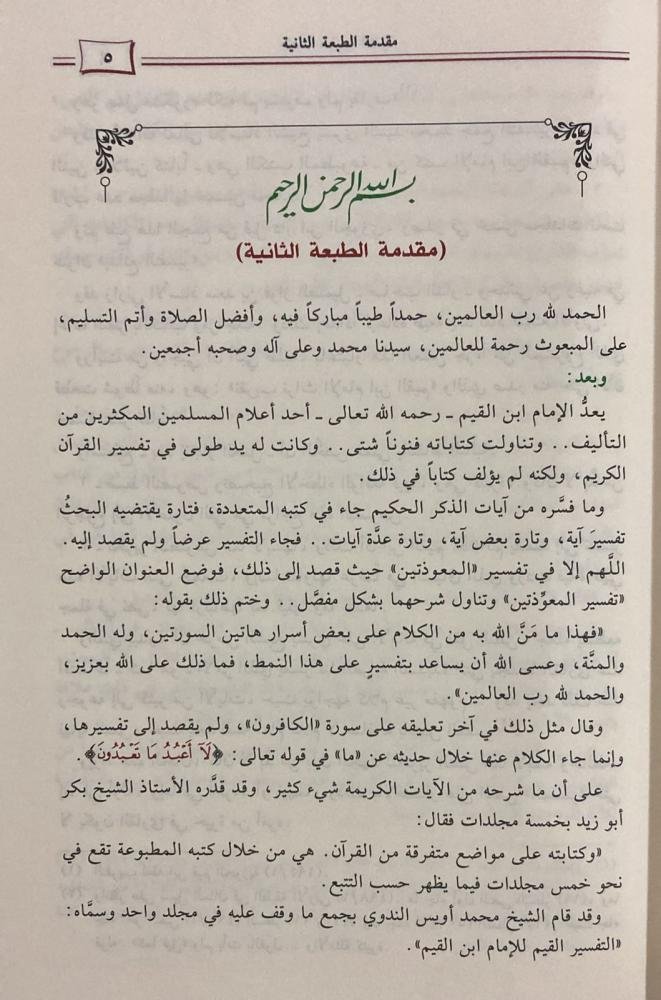 مقدمة الطبعة الثانية
٥
بسم الله الرحمن الرحيم
(مقدمة الطبعة الثانية)
الحمد لله رب العالمين، حمداً طيباً مباركاً فيه، وأفضل الصلاة وأتم التسليم،
على المبعوث رحمة للعالمين، سيدنا محمد وعلى آله وصحبه أجمعين.
وبعد:
يعدُّ الإمام ابن القيم ـ رحمه الله تعالى ـ أحد أعلام المسلمين المكثرين من
التأليف.. وتناولت كتاباته فنوناً شتى.. وكانت له يد طولى في تفسير القرآن
الكريم، ولكنه لم يؤلف كتاباً في ذلك.
وما فسَّره من آيات الذكر الحكيم جاء في كتبه المتعددة، فتارة يقتضيه البحثُ
تفسيرَ آية، وتارة بعض آية، وتارة عدَّة آيات.. فجاء التفسير عرضاً ولم يقصد إليه.
اللَّهم إلا في تفسير «المعوذتين» حيث قصد إلى ذلك، فوضع العنوان الواضح
«تفسير المعوِّذتين» وتناول شرحهما بشكل مفصَّل.. وختم ذلك بقوله:
«فهذا ما مَنَّ الله به من الكلام على بعض أسرار هاتين السورتين، وله الحمد
والمنَّة، وعسى الله أن يساعد بتفسيرٍ على هذا النمط، فما ذلك على الله بعزيز،
والحمد لله رب العالمين».
وقال مثل ذلك في آخر تعليقه على سورة «الكافرون»، ولم يقصد إلى تفسيرها،
وإنما جاء الكلام عنها خلال حديثه عن «ما» في قوله تعالى: ﴿لَآ أَعْبُدُ مَا تَعْبُدُونَ﴾.
على أن ما شرحه من الآيات الكريمة شيء كثير، وقد قدَّره الأستاذ الشيخ بكر
أبو زيد بخمسة مجلدات فقال:
«وكتابته على مواضع متفرقة من القرآن. هي من خلال كتبه المطبوعة تقع في
نحو خمس مجلدات فيما يظهر حسب التتبع.
وقد قام الشيخ محمد أويس الندوي بجمع ما وقف عليه في مجلد واحد وسمَّاه:
«التفسير القيم للإمام ابن القيم».